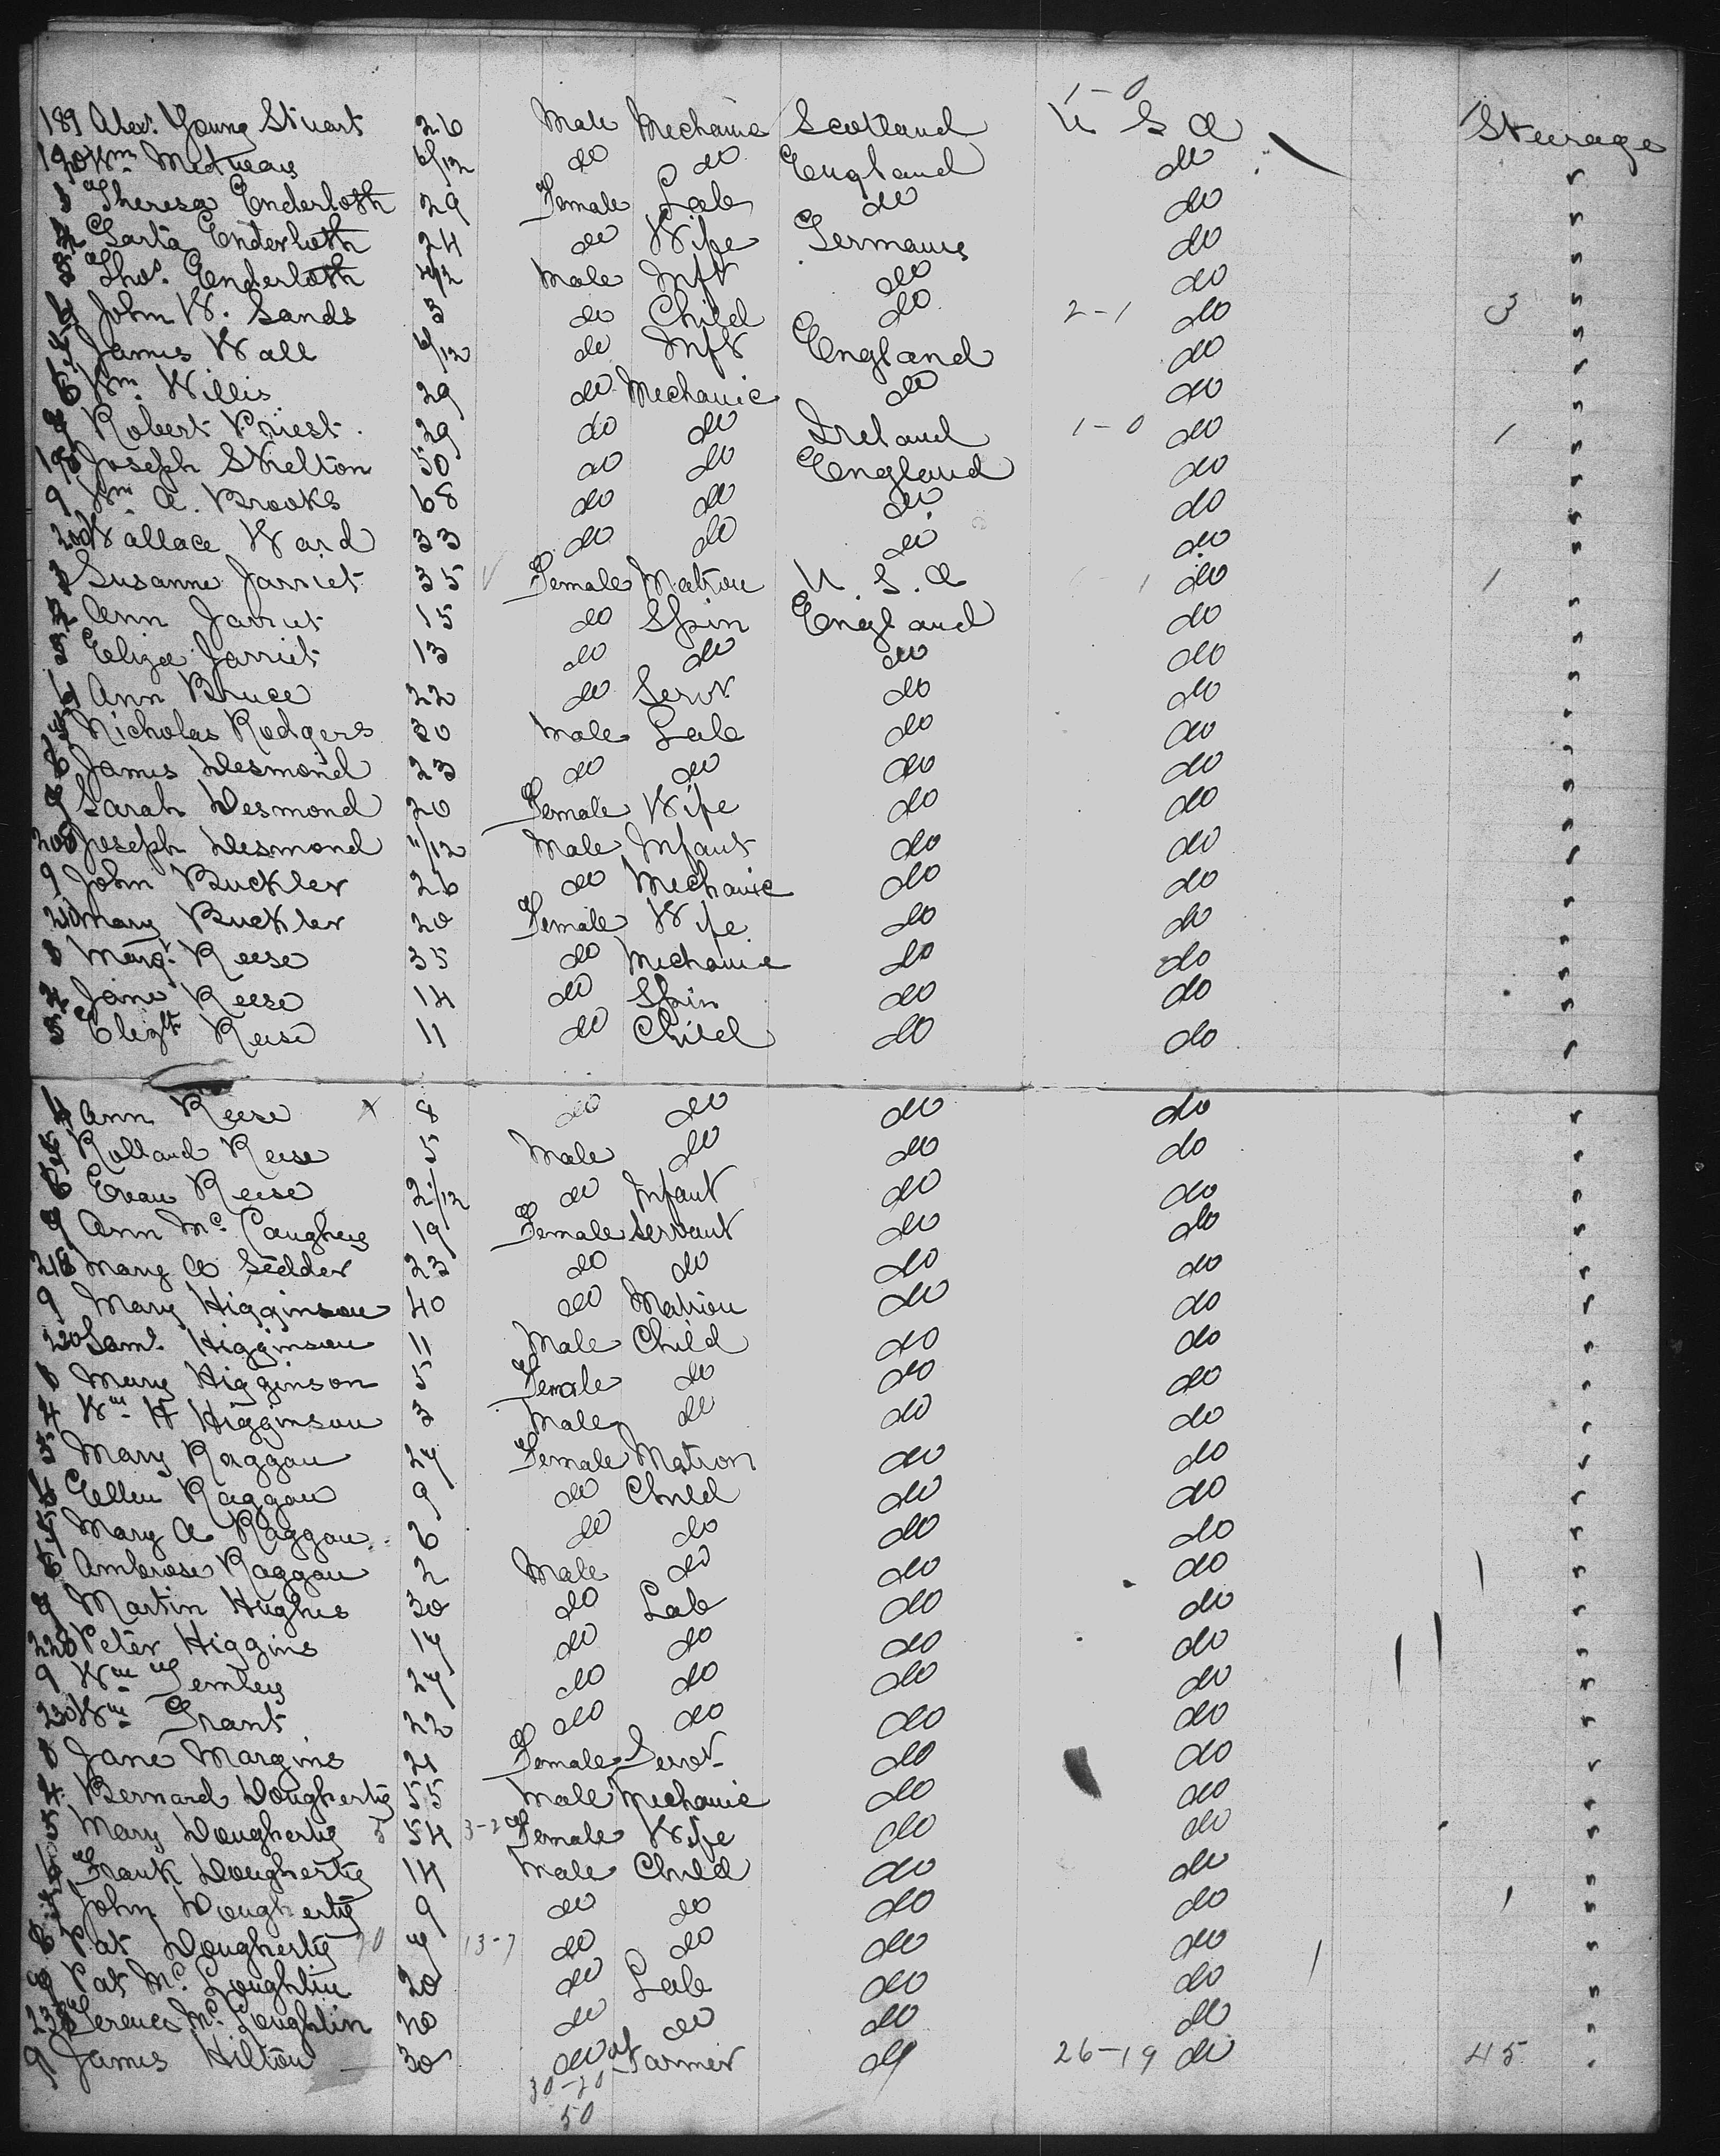 1-0
189 Alexr. Young Stuart 26 Male Mechanic Scotland U S A Steerage
190 Wm 6/12 do do England do "
Theresa Enderloth 29 Female Lab do do "
Enderloth 24 do Wife Germany do "
Thos. Enderloth /12 Male Inft do do "
John W. Sands 3 do Child do 2-1 do 3 "
James Wall 6/12 do Inft England do "
6 Wm. Willis 29 do Mechanic do do "
Robert Priest. 29 do do Ireland 1-0 do 1 "
198 Joseph 50 do do England do "
9 Wm. A. Brooks 68 do do do do "
200 Wallace Ward 33 do do do do "
Susanne Jarriet 35 Female Matron U. S. A do 1 "
2 Ann Jarriet 15 do Spin England do "
3 Eliza Jarriet 13 do do do do "
Ann Bruce 22 do Servt do do "
Nicholas Rodgers 30 Male Lab do do "
6 James Desmond 23 do do do do "
Sarah Desmond 20 Female Wife do do "
208 Joseph Desmond 11/12 Male Infant do do "
9 John Buckler 26 do Mechanic do do "
210 Mary Buckler 20 Female Wife do do "
Margt. Reese 35 do Mechanic do do "
2 Jane Reese 14 do Spin do do "
3 Elizth Reese 11 do Child do do "
4 Ann Reese x 8 do do do do "
5 Rolland Reese 5 Male do do do "
6 Evan Reese 2/12 do Infant do do "
Ann Mc. Caughey 19 Female Servant do do "
218 Mary A Sedder 23 do do do do "
9 Mary Higginson 40 do Matron do do "
220 Saml. Higginson 11 Male Child do do "
Mary Higginson 5 Female do do do "
Wm H Higginson 3 Male do do do "
3 Mary Raggan 27 Female Matron do do "
4 Ellen Raggan 9 do Child do do "
5 Mary A. Raggan 6 do do do do "
6 Ambrose Raggan 2 Male do do do "
Martin Hughes 30 do Lab do do "
228 Peter Higgins 17 do do do do "
9 Wm 27 do do do do "
230 Wm Grant 22 do do do do "
Jane Margins 21 Female Servt do do "
Bernard Dougherty 55 Male Mechanic do do "
3 Mary Dougherty 5 54 3-2 Female Wife do do "
Frank Dougherty 14 Male Child do do "
John Dougherty 9 do do do do "
6 Pat Dougherty 7 13-7 do do do do "
Pat Mc. Loughlin 20 do Lab do do "
238 Terence Mc. Loughlin 20 do do do do "
9 James Hilton 30 do Farmer do 26-19 do 45 "
30-20
50